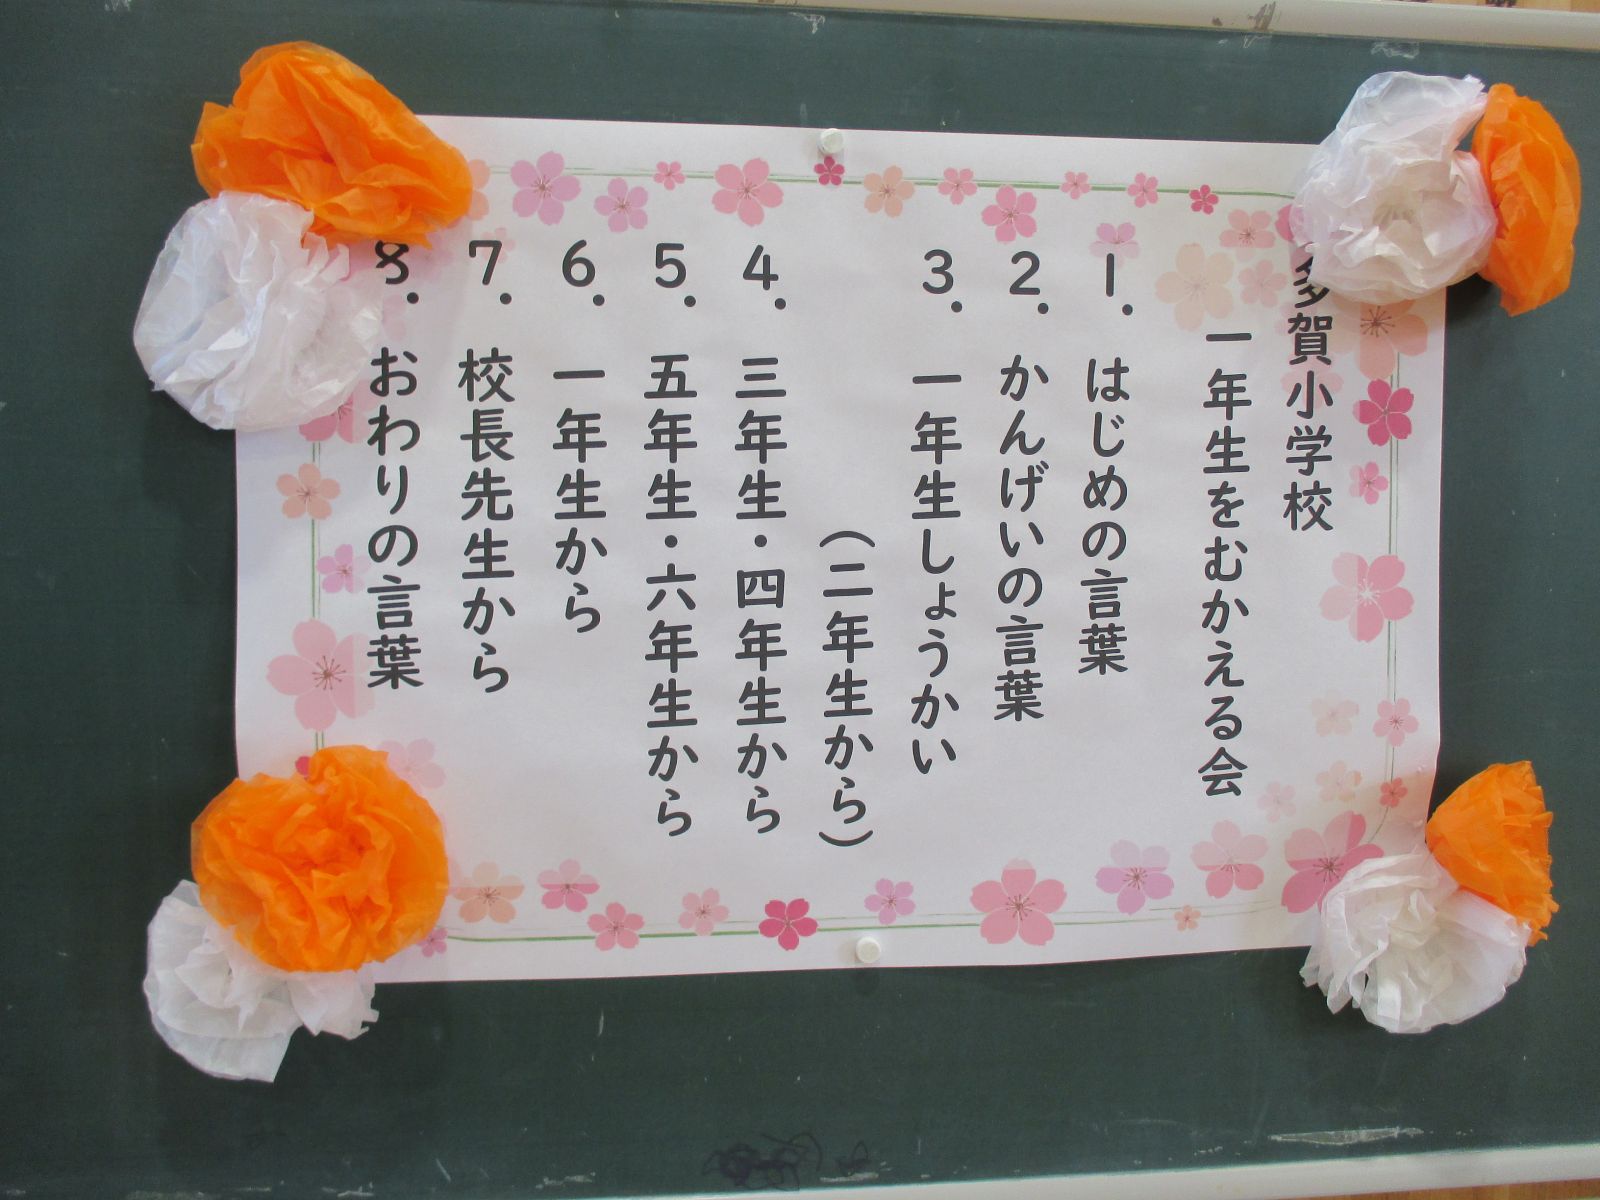 多賀小学校
一年生をむかえる会
1. はじめの言葉
2. かんげいの言葉
3. 一年生しょうかい
(二年生から)
4. 三年生・四年生から
5. 五年生・六年生から
6. 一年生から
7. 校長先生から
8. おわりの言葉